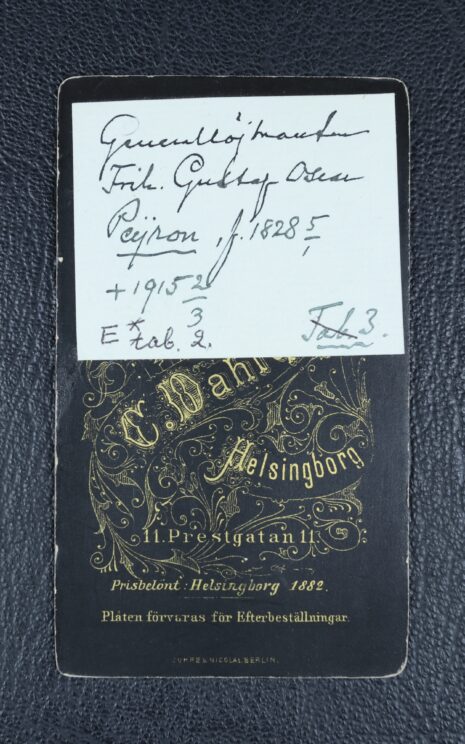 Generallöjtnanten
Frih. Gustaf Oscar
Peÿron, f. 1828 5/1
+ 1915 2/3
E* tab. 2. Tab 3.
C. Dahl
Helsingborg
11. Prestgatan 11.
Prisbelönt: Helsingborg 1882.
Plåten förvaras för Efterbeställningar.
BERLIN.